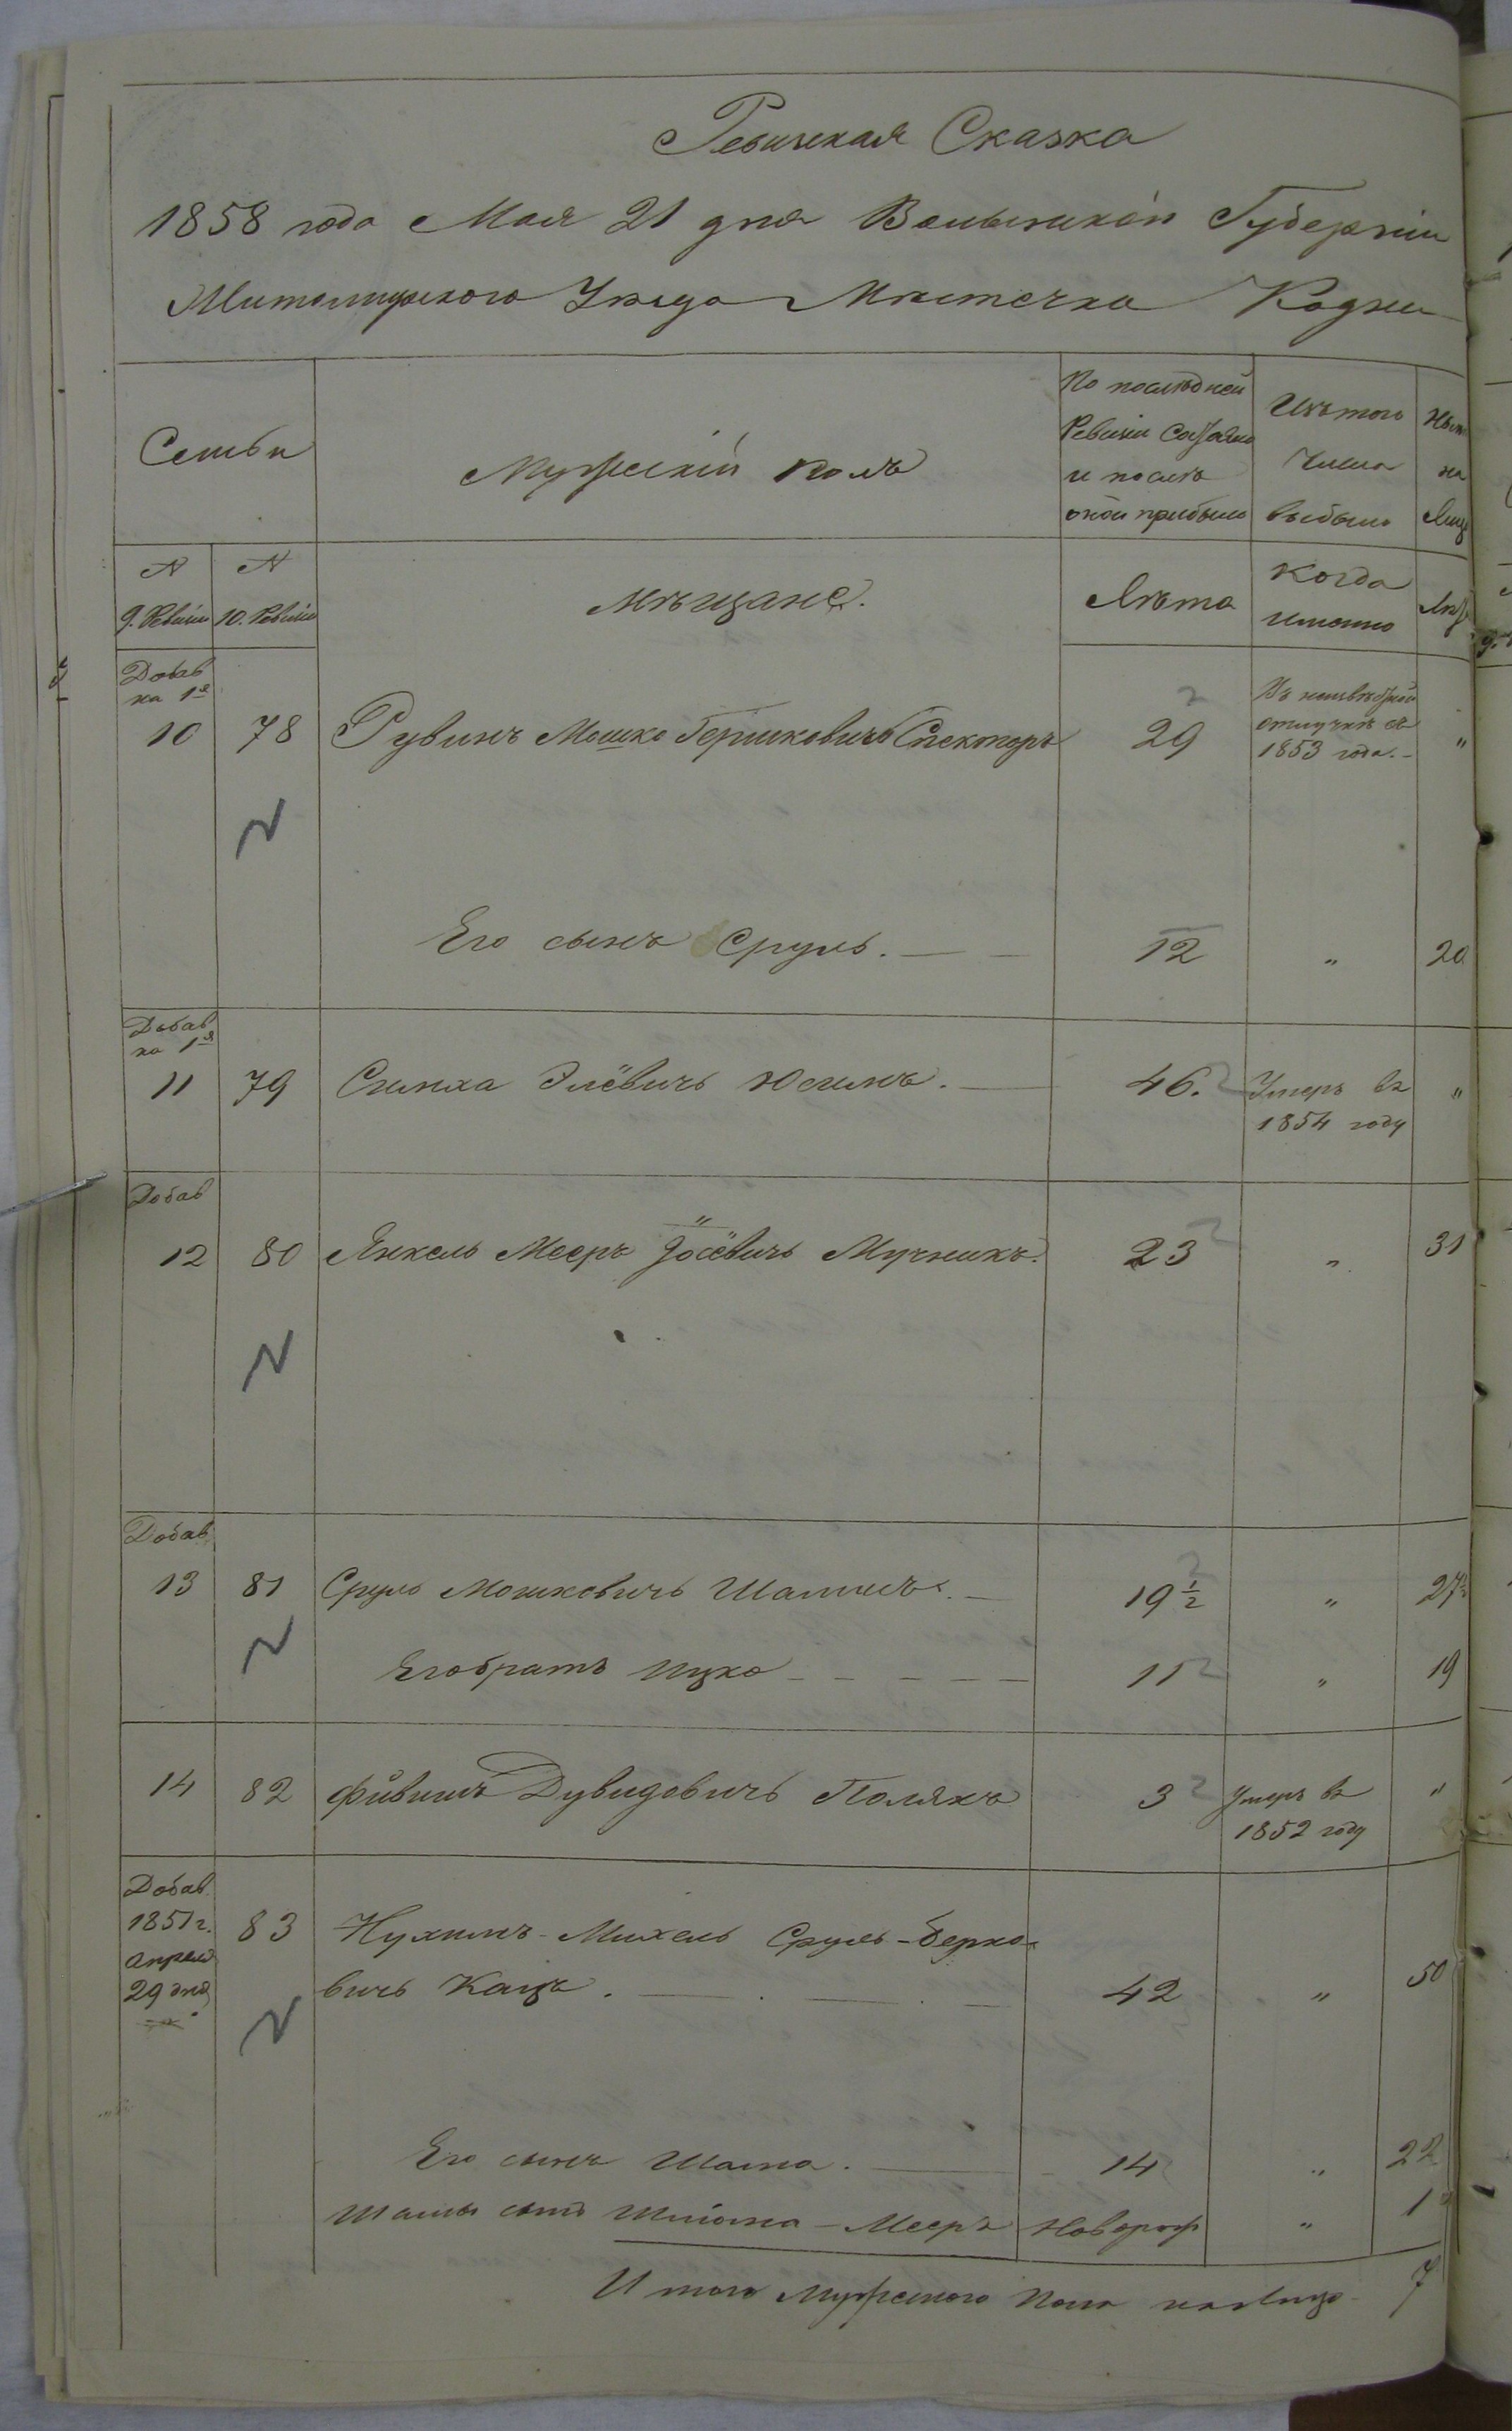 Ревизская Сказка
1858 года Мая 21 дня Волынской Губернии
Житомирского Уезда Местечка Кодни
Семьи
Мужескій полъ
По последней
Ревизіи состояло
и после
оной прибыло
Изъ того
числа
выбыло
Ныне
на
лице
N
9. Ревизіи
N
10. Ревизіи
мѣщане.
Лѣта
когда
именно
Лѣта
Добав
на 1й
10 78 Рувинъ Мошко Гершковичъ Спекторъ 29 Въ неизвѣстной
отлучкѣ съ
1853 года. "
Его сынъ Сруль. 12 " 20
Добав
на 1й
11 79 Симха Элёвичъ Юсимъ. 46. Умеръ въ "
1854 году
Добав
12 80 Янкель Мееръ Іосёвичъ Мучникъ. 23 " 31
Добав
13 81 Сруль Мошковичъ Шамисъ. 19 1/2 " 27 1/2
Его братъ Ицко 11 " 19
14 82 Фйвишъ Дувидовичъ Полякъ 3 Умеръ въ "
1852 году
Добав
1851 г. 83 Нухимъ-Михель Сруль-Берко-
апреля
29 дня вичъ Кацъ. 42 " 50
Его сынъ Шама. 14 " 22
Шамы сынъ Шлёма-Мееръ Новорож " 1
Итого мужеского пола на лицо 7